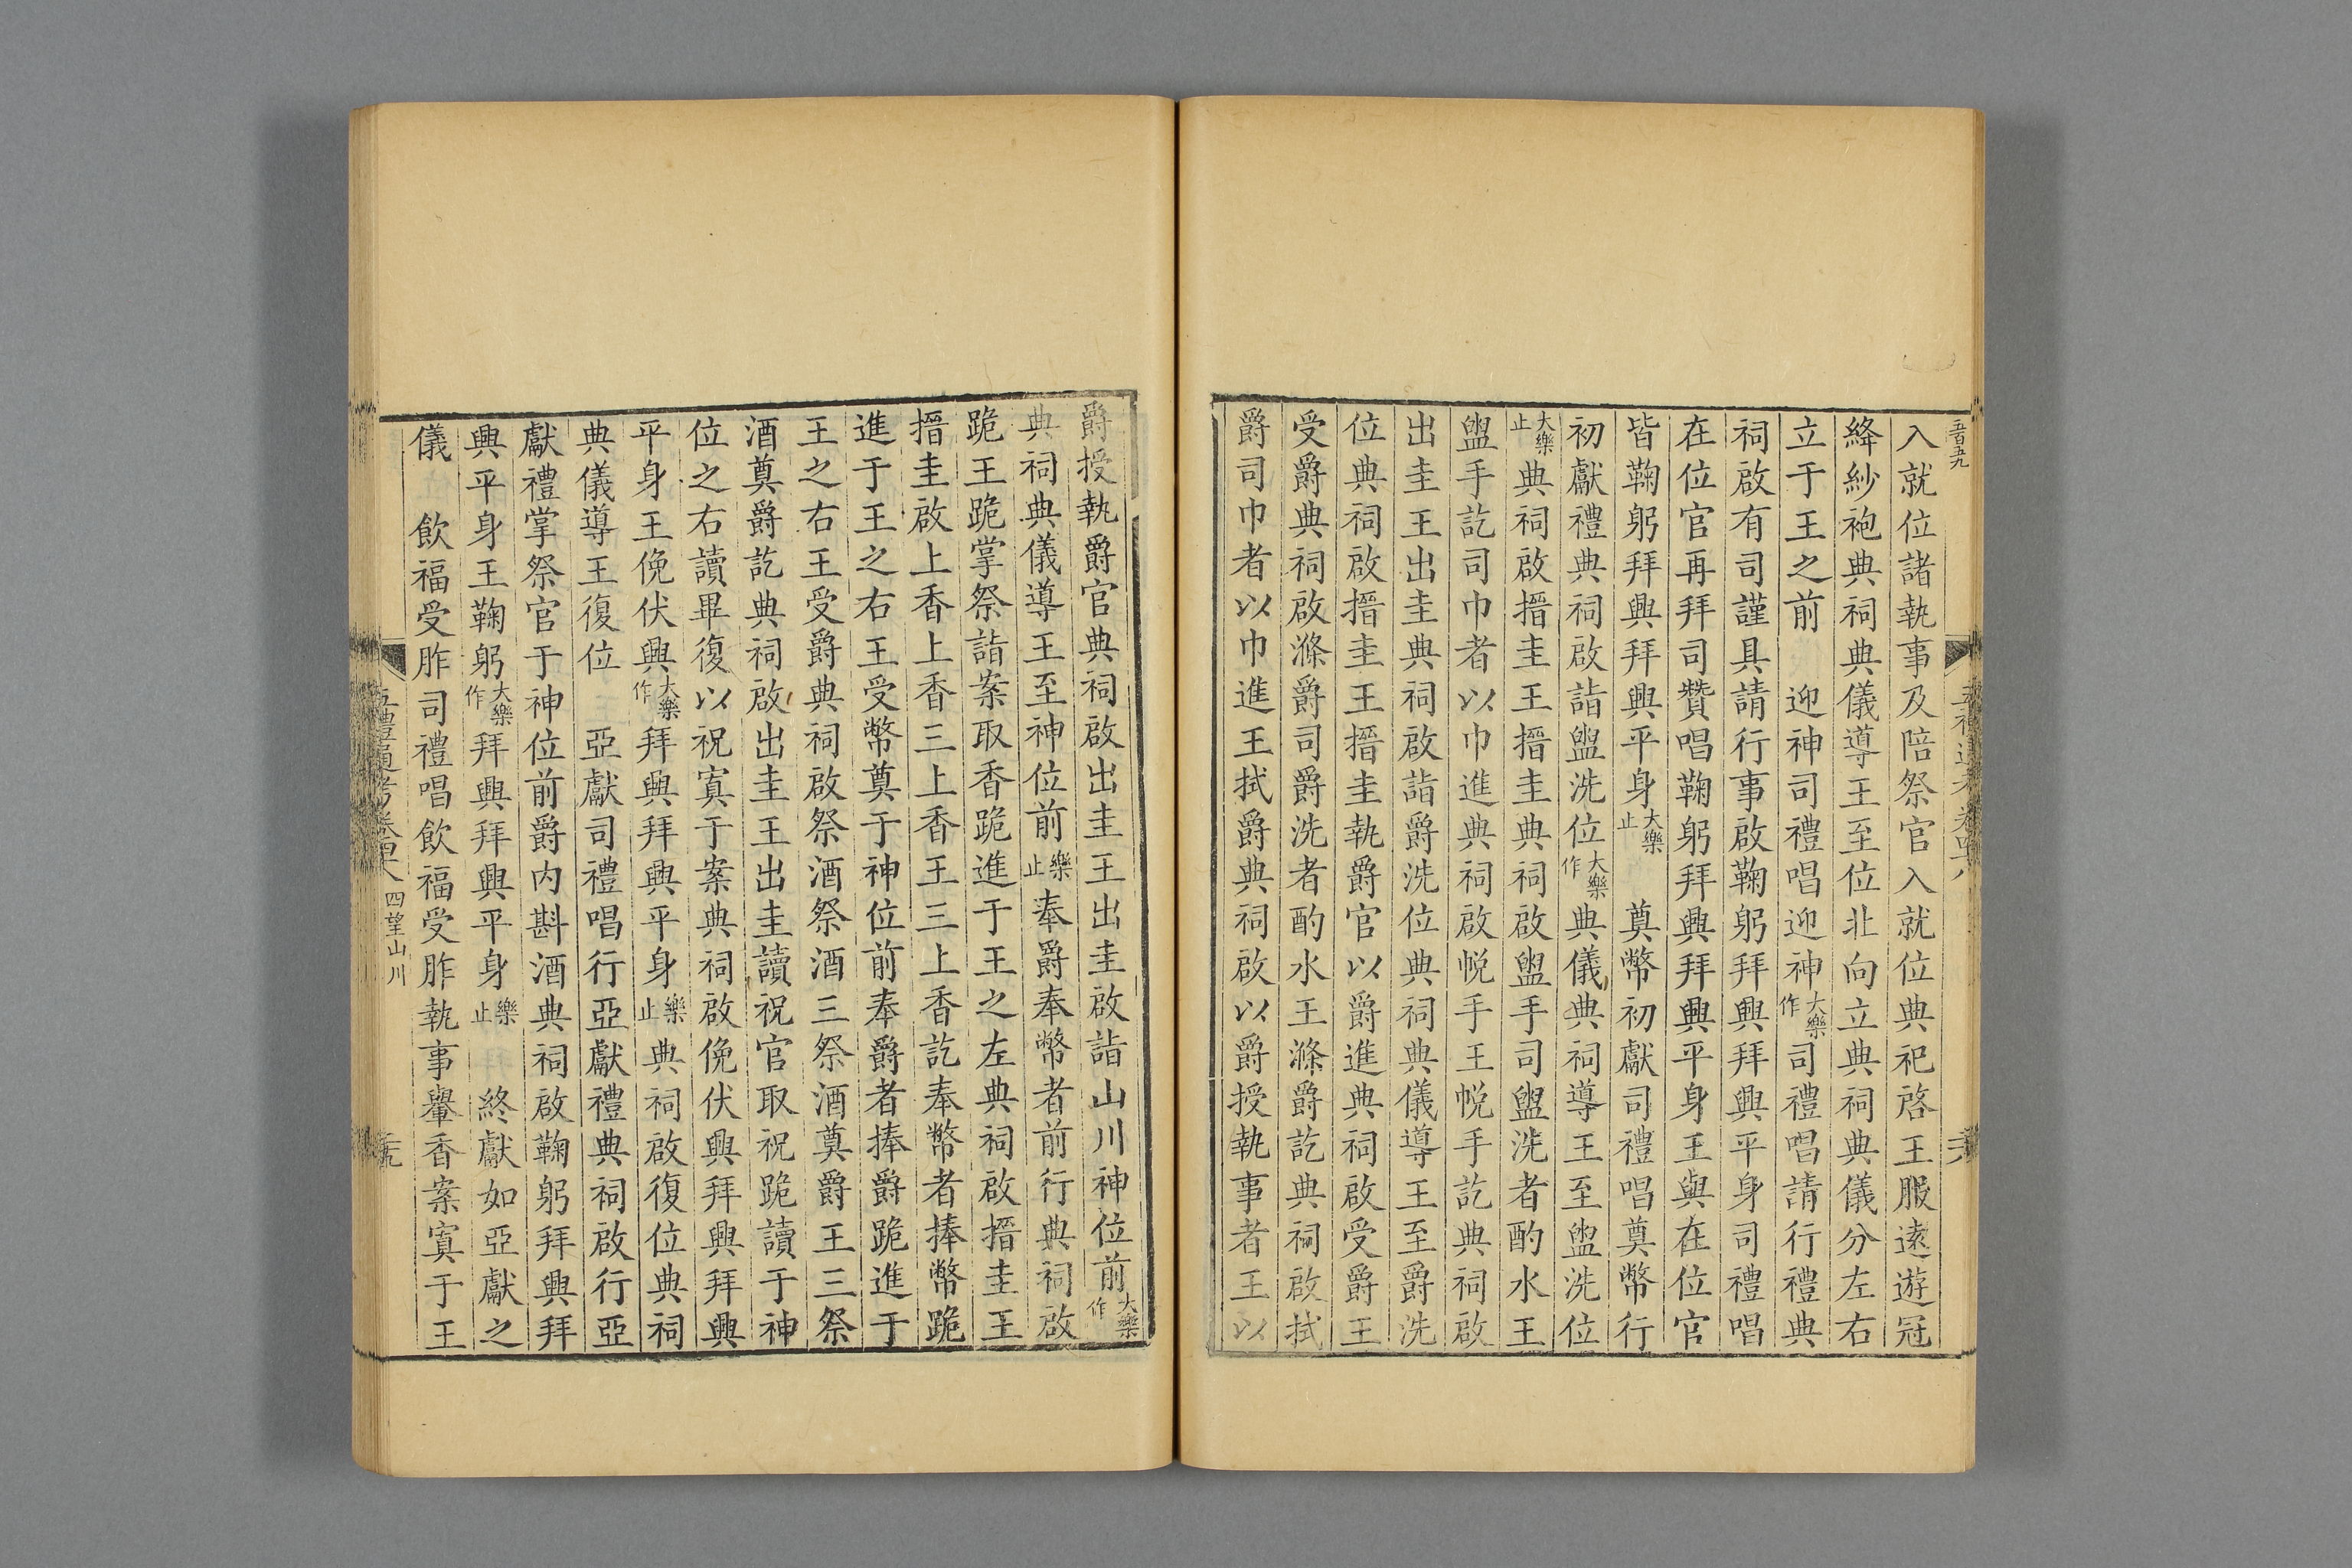 入就位諸執事及陪祭官入就位典祀啓王服遠遊冠
絳紗袍典祠典儀導王至位北向立典祠典儀分左右
立于王之前　迎神司禮唱迎神大樂作司禮唱請行禮典
祠啟有司謹具請行事啟鞠躬拜興拜興平身司禮唱
在位官再拜司贊唱鞠躬拜興拜興平身王與在位官
皆鞠躬拜興拜興平身大樂止　奠幣初獻司禮唱奠幣行
初獻禮典祠啟詣盥洗位大樂作典儀典祠導王至盥洗位
大樂止典祠啟搢圭王搢圭典祠啟盥手司盥洗者酌水王
盥手訖司巾者以巾進典祠啟帨手王帨手訖典祠啟
出圭王出圭典祠啟詣爵洗位典祠典儀導王至爵洗
位典祠啟搢圭王搢圭執爵官以爵進典祠啟受爵王
受爵典祠啟滌爵司爵洗者酌水王滌爵訖典祠啟拭
爵司巾者以巾進王拭爵典祠啟以爵授執事者王以
爵授執爵官典祠啟出圭王出圭啟詣山川神位前大樂作
典祠典儀導王至神位前樂止奉爵奉幣者前行典祠啟
跪王跪掌祭詣案取香跪進于王之左典祠啟搢圭王
搢圭啟上香上香三上香王三上香訖奉幣者捧幣跪
進于王之右王受幣奠于神位前奉爵者捧爵跪進于
王之右王受爵典祠啟祭酒祭酒三祭酒奠爵王三祭
酒奠爵訖典祠啟出圭王出圭讀祝官取祝跪讀于神
位之右讀畢復以祝寘于案典祠啟俛伏興拜興拜興
平身王俛伏興大樂作拜興拜興平身樂止典祠啟復位典祠
典儀導王復位　亞獻司禮唱行亞獻禮典祠啟行亞
獻禮掌祭官于神位前爵內斟酒典祠啟鞠躬拜興拜
興平身王鞠躬大樂作拜興拜興平身樂止　終獻如亞獻之
儀　飲福受胙司禮唱飲福受胙執事舉香案寘于王
四望山川